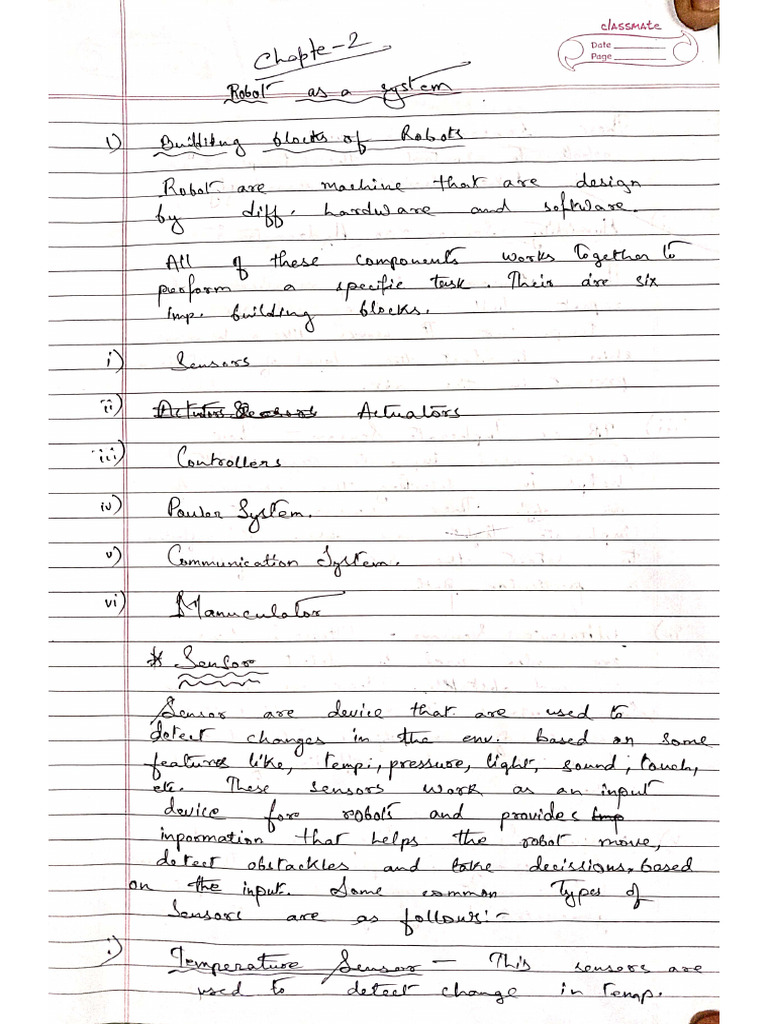 classmate
Date
Page
Chapte-2
Robot as a system
1) Building blocks of Robots
Robot are machine that are design
by diff. hardware and software.
All of these components works together to
preform a specific task. Their are six
imp. building blocks.
i) Sensors
ii) Actuators
iii) Controllers
iv) Power System.
v) Communication System.
vi) Manuculator
* Sensor
Sensor are device that are used to
detect changes in the env. based on some
features like, temp, pressure, light, sound, touch,
etc. These sensors work as an input
device fore robots and provides
information that helps the robot move,
detect obstackles and take decissions, based
on the input. Some common types of
sensors are as follows:-
i) Temperature Sensor - This sensors are
used to detect change in temp.